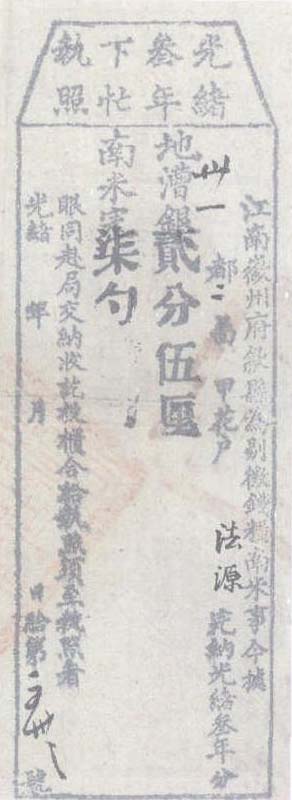 光緒
叁年
下忙
執照
江南徽州府歙縣為剔徵錢糧南米事今據
卅一都二啚 甲花戶 法源 完納光緒叁年分
地漕銀貳分伍厘
南米 柒勺
眼同赴局交納收訖投櫃合給執照須至執照者
光緒 年 月 日給第 號